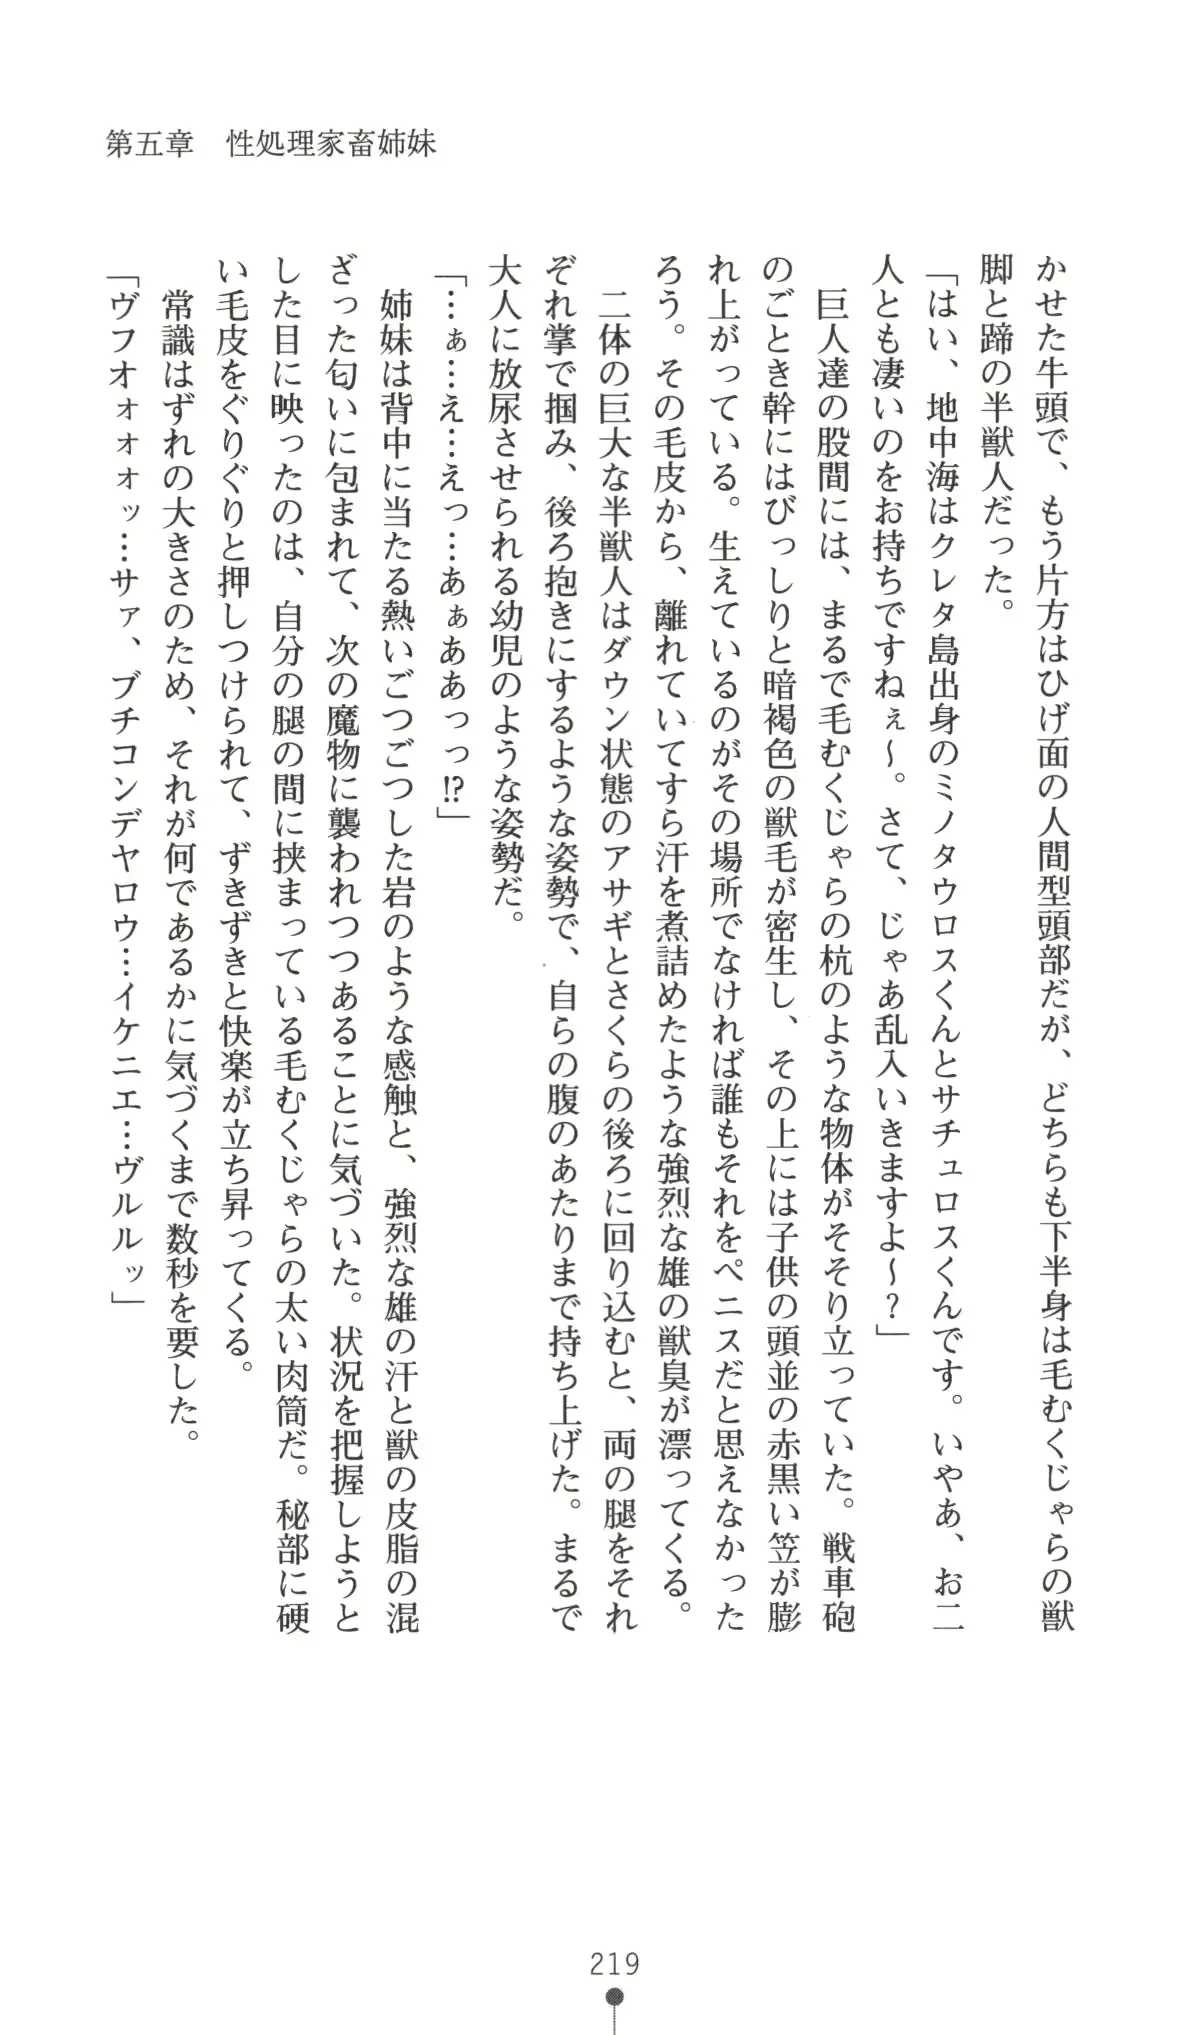 第五章　性処理家畜姉妹
かせた牛頭で、もう片方はひげ面の人間型頭部だが、どちらも下半身は毛むくじゃらの獣
脚と蹄の半獣人だった。
「はい、地中海はクレタ島出身のミノタウロスくんとサチュロスくんです。いやあ、お二
人とも凄いのをお持ちですねぇ～。さて、じゃあ乱入いきますよ～？」
　巨人達の股間には、まるで毛むくじゃらの杭のような物体がそそり立っていた。戦車砲
のごとき幹にはびっしりと暗褐色の獣毛が密生し、その上には子供の頭並の赤黒い笠が膨
れ上がっている。生えているのがその場所でなければ誰もそれをペニスだと思えなかった
ろう。その毛皮から、離れていてすら汗を煮詰めたような強烈な雄の獣臭が漂ってくる。
　二体の巨大な半獣人はダウン状態のアサギとさくらの後ろに回り込むと、両の腿をそれ
ぞれ掌で掴み、後ろ抱きにするような姿勢で、自らの腹のあたりまで持ち上げた。まるで
大人に放尿させられる幼児のような姿勢だ。
「…ぁ…え…えっ…あぁああっっ⁉」
　姉妹は背中に当たる熱いごつごつした岩のような感触と、強烈な雄の汗と獣の皮脂の混
ざった匂いに包まれて、次の魔物に襲われつつあることに気づいた。状況を把握しようと
した目に映ったのは、自分の腿の間に挟まっている毛むくじゃらの太い肉筒だ。秘部に硬
い毛皮をぐりぐりと押しつけられて、ずきずきと快楽が立ち昇ってくる。
　常識はずれの大きさのため、それが何であるかに気づくまで数秒を要した。
「ヴフオォォォッ…サァ、ブチコンデヤロウ…イケニエ…ヴルルッ」
219